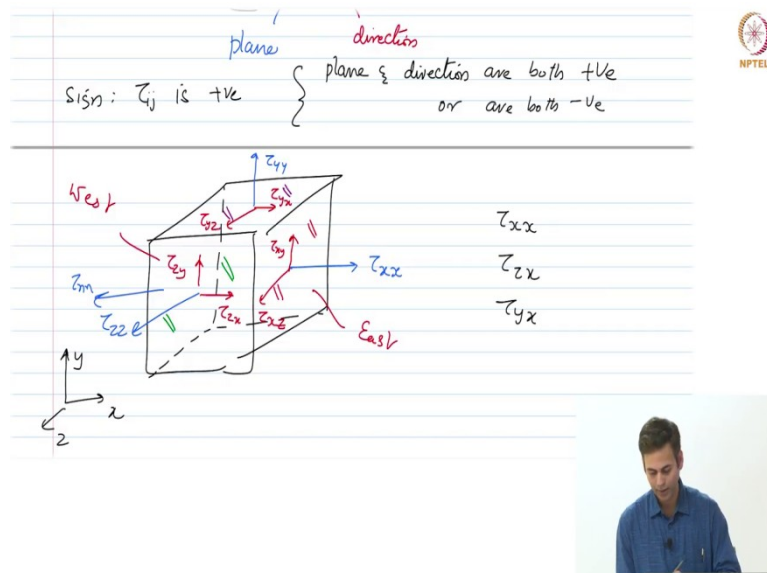 plane direction
NPTEL
Sign: τij is +ve { plane & direction are both +ve
or are both -ve
τyy
West
τyz τyx
τzy τxy
τxx τxx
τxx
τzz τzx τxz
τzx
East
τyx
y
x
z